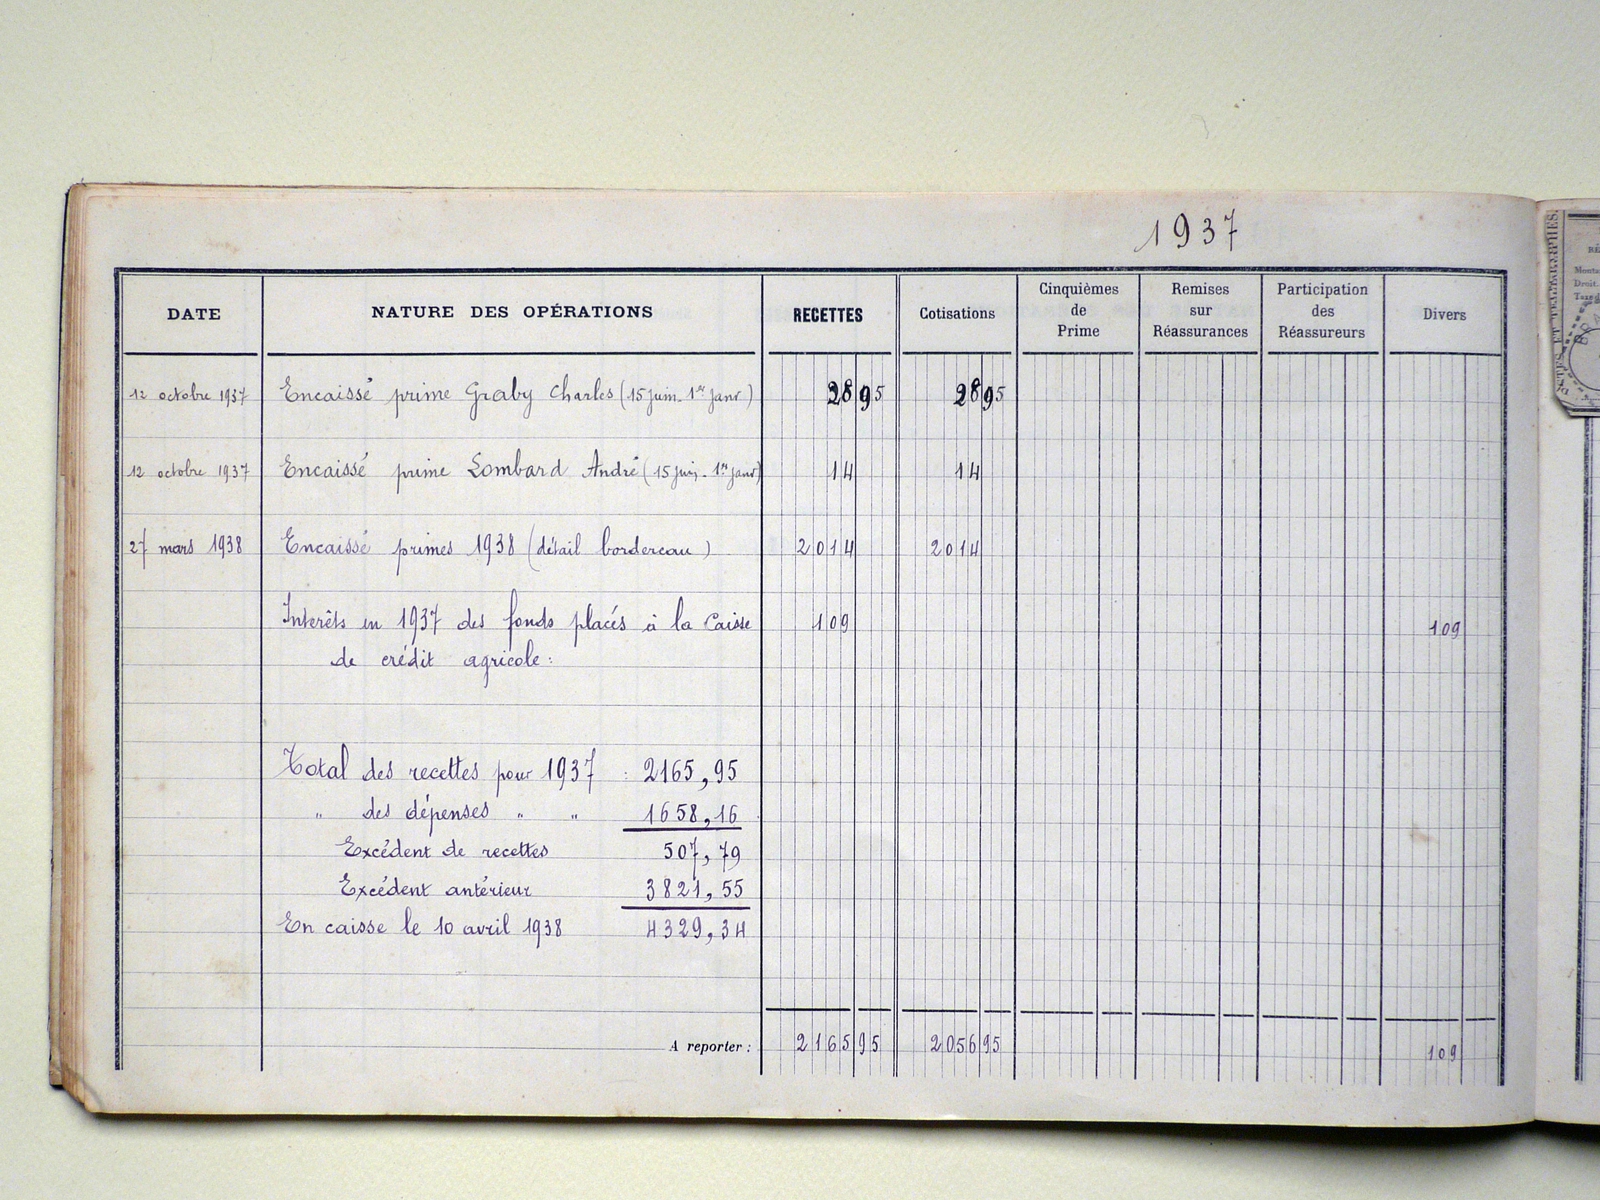 1937
DATE NATURE DES OPÉRATIONS RECETTES Cotisations Cinquièmes de Prime Remises sur Réassurances Participation des Réassureurs Divers
12 octobre 1937 Encaissé prime Graby Charles (15 juin - 1er janv) 28 95 28 95
12 octobre 1937 Encaissé prime Lombard André (15 juin - 1er janv) 14 14
27 mars 1938 Encaissé primes 1938 (détail bordereau) 2014 2014
Interêts en 1937 des fonds placés à la Caisse 109 109
de crédit agricole :
Total des recettes pour 1937 : 2165,95
" des dépenses " " 1658,16
Excédent de recettes 507,79
Excédent antérieur 3821,55
En caisse le 10 avril 1938 4329,34
A reporter : 2165 95 2056 95 109